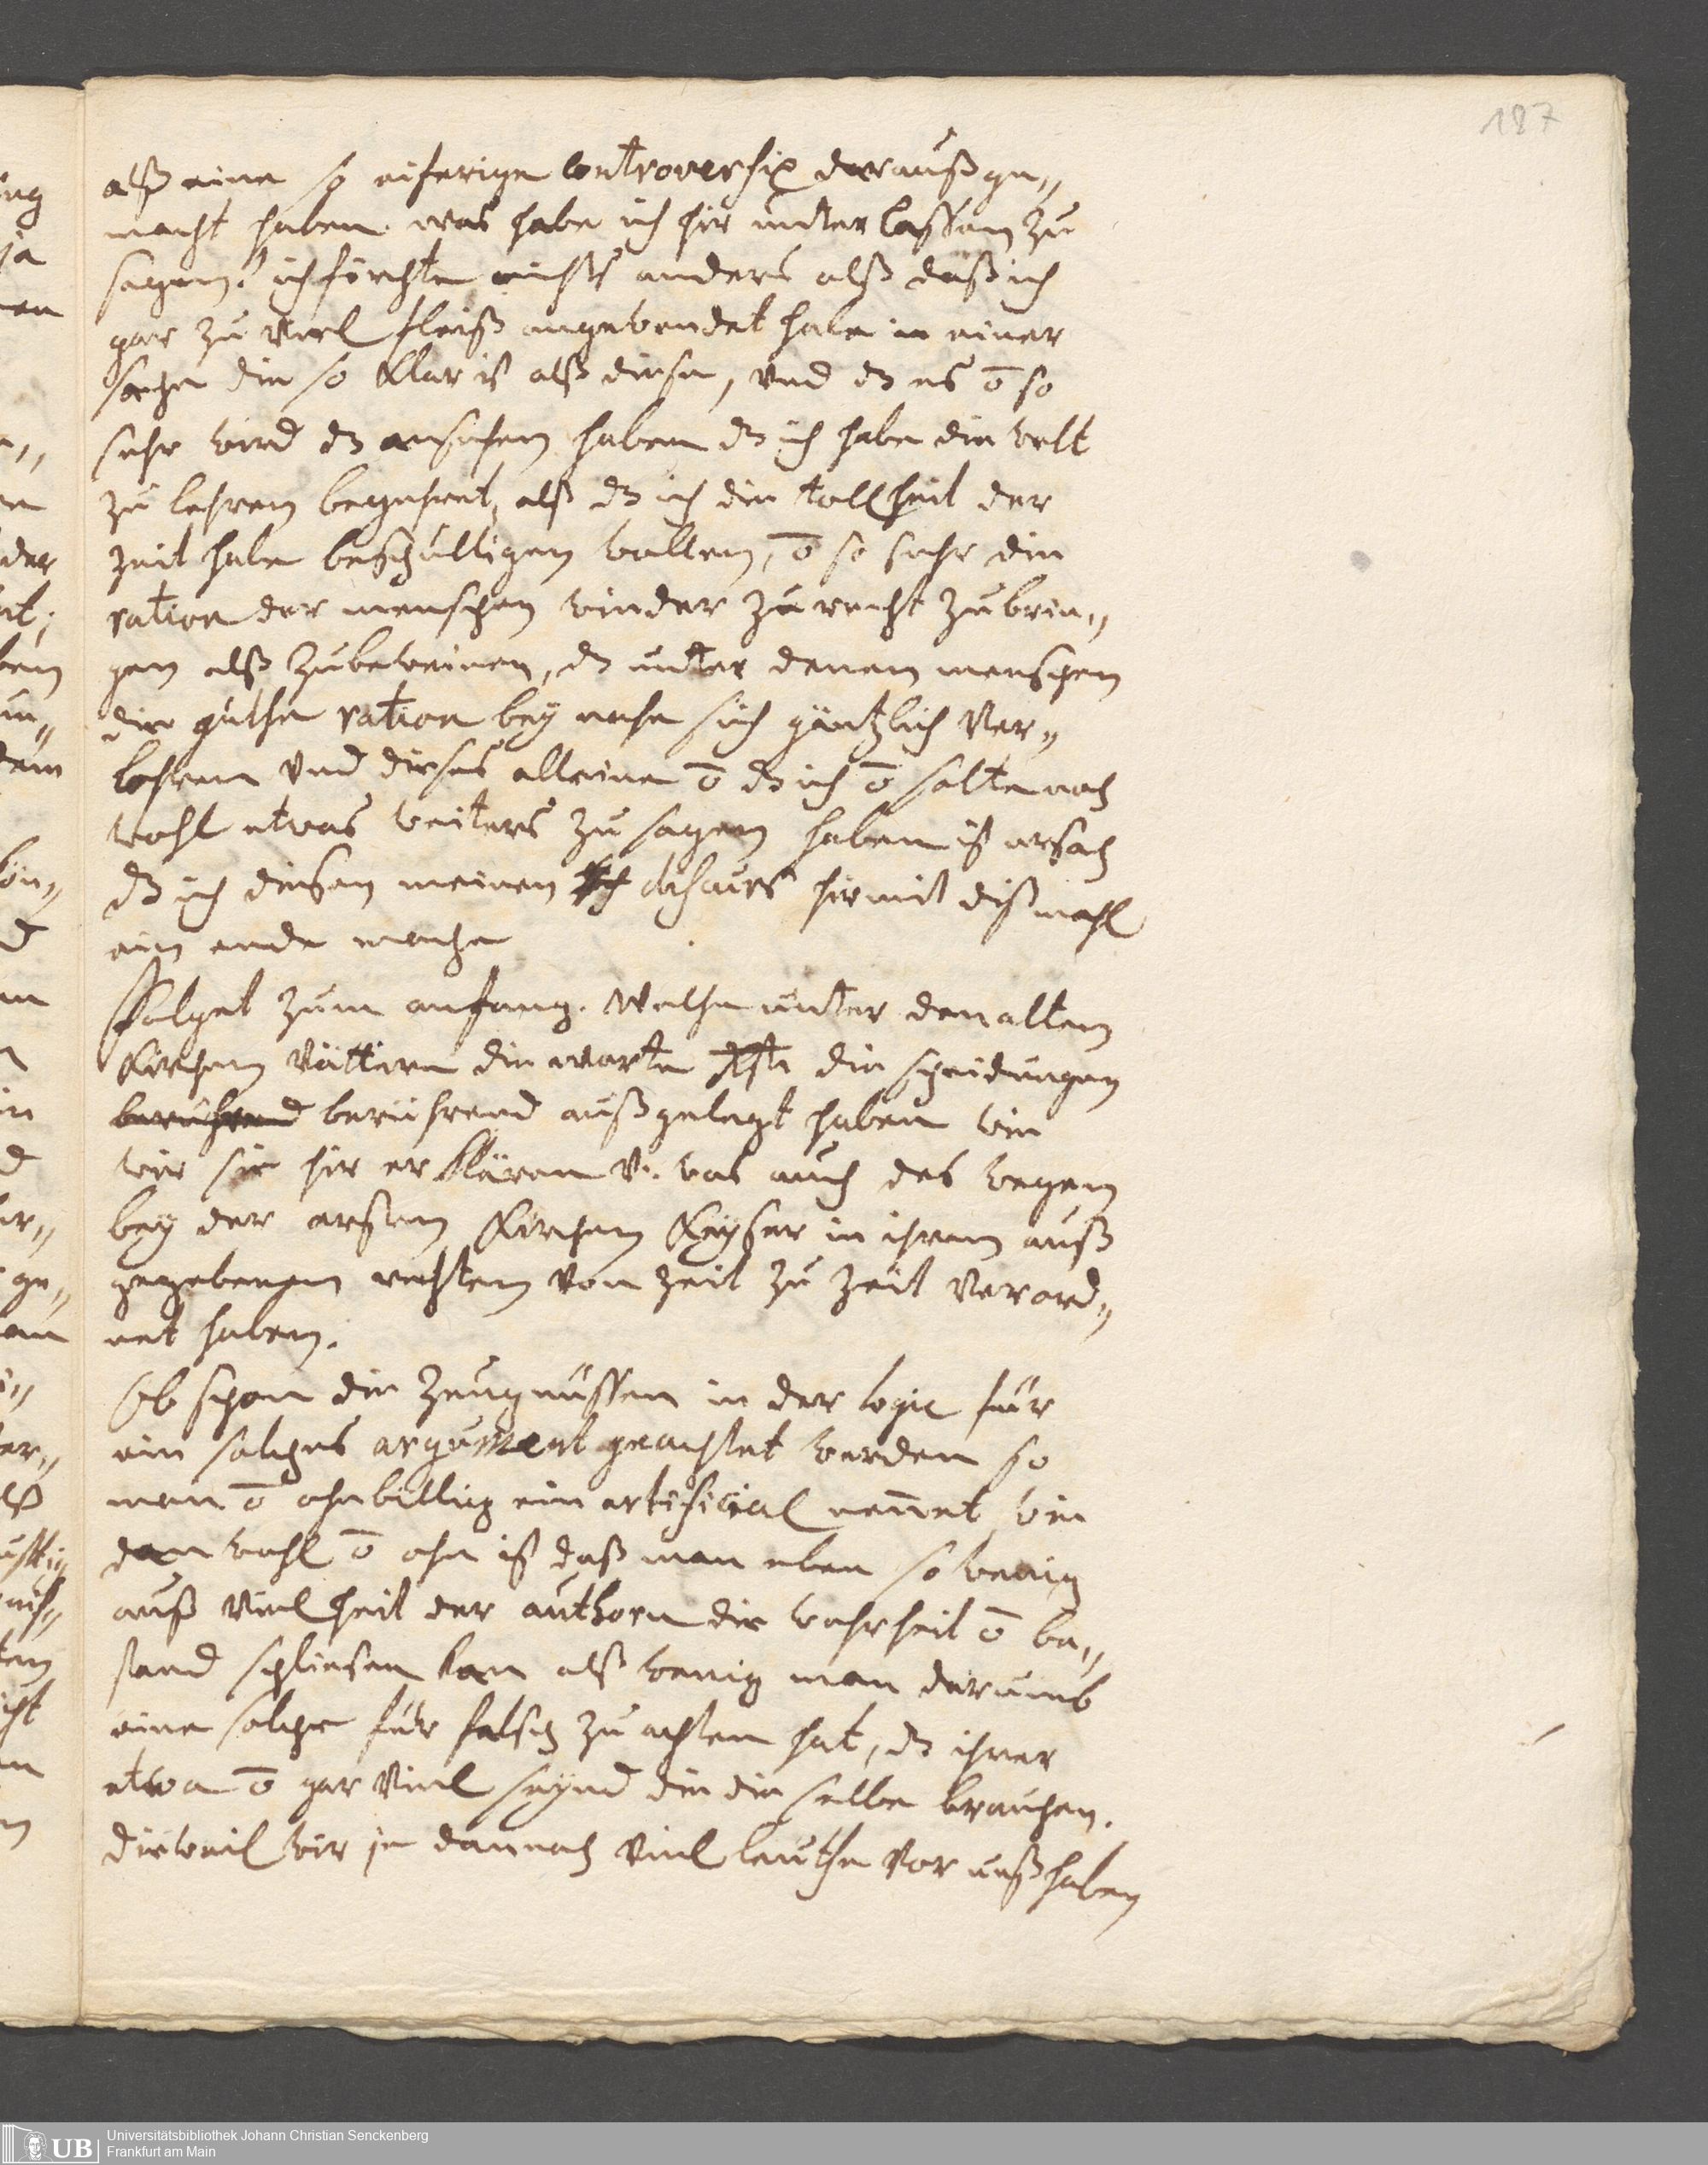 187
alß eine so eiferige controversix darauß ge„
macht haben. was habe ich hir unter lassen zu
sagen? ich förchte nichts anders alß daß ich
gar zu viel fleiß angewendet habe in einer
sache die so klar ist alß diese, und dz es o̅ so
sehr wird dz ansehen haben dz ich habe die welt
zu lehren begehret, alß dz ich die tollheit der
zeit habe beschulligen wollen, o̅ so sehr die
ration der menschen wieder zu recht zu brin„
gen alß zubeweinen, dz unter denen menschen
die guthe ration bey nahe sich gäntzlich ver„
lohren und dieses alleine o̅ dz ich o̅ solte noch
wohl etwas weiters zu sagen haben ist ursach
dz ich diesen meinen discurs hirmit dißmahl
ein ende mache
Folget zum anfang. Welche unter den alten
Kirchen vättern die worte Xsti die scheidungen
berührend berührend außgelegt haben wie
wir sie hir er klären v. was auch des wegen
bey der ersten Kirchen Keyser in ihren auß
gegebenen rechten von zeit zu zeit verord„
net haben.
Ob schon die Zeugnüssen in der logic für
ein solches argument geachtet werden so
man o̅ ohnbillig ein artificial nennet, wie
dan wohl o̅ ohn ist daß man eben so wenig
auß vielheit der authorn die wahrheit o̅ be„
stand schliesen kan alß wenig man darumb
eine solche für falsch zu achten hat, dz ihrer
etwa o̅ gar viel seynd die die selbe brauchen.
dieweil wir je dannoch viel leuthe vor unß haben
UB
Universitätsbibliothek Johann Christian Senckenberg
Frankfurt am Main